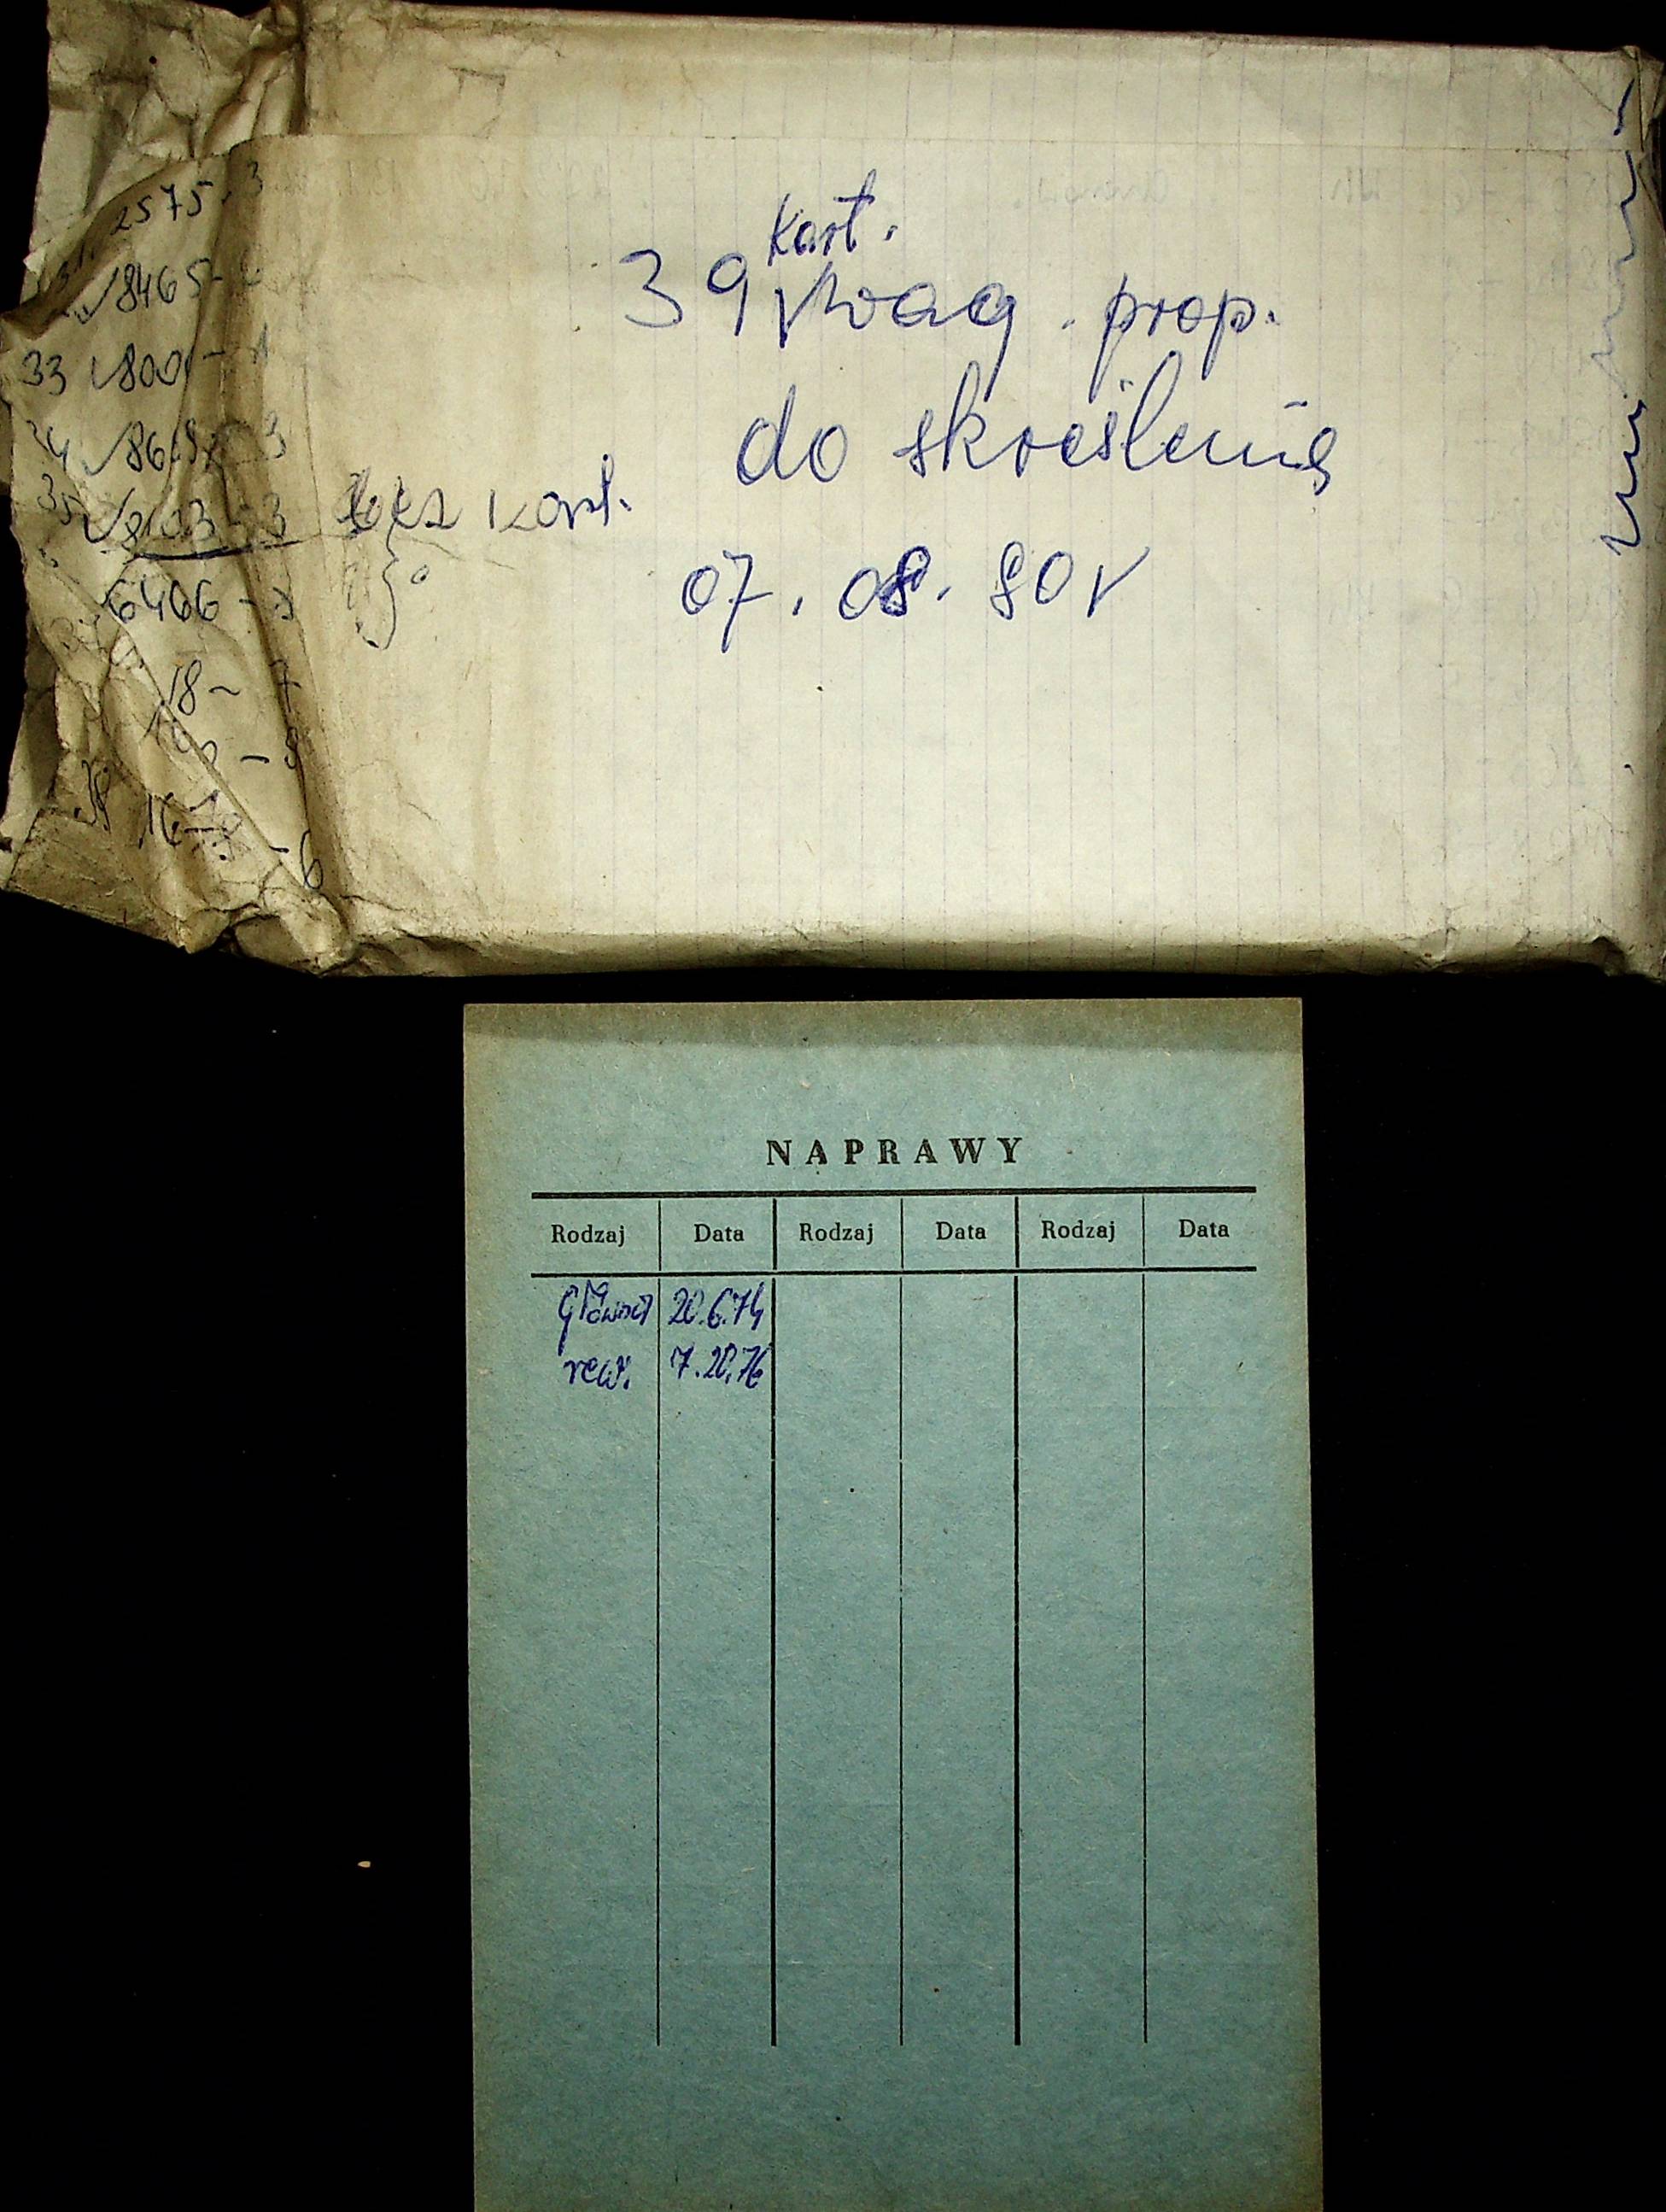 Kart.
39 wag. prop.
do skreślenia
07. 08. 80r
2575-3
8465-
33 800 -
34 86
35 8103-3 bez kart.
6466 -
18- 7
16-
-6
NAPRAWY
Rodzaj Data Rodzaj Data Rodzaj Data
Główna 20.6.74
rew. 7.20.76